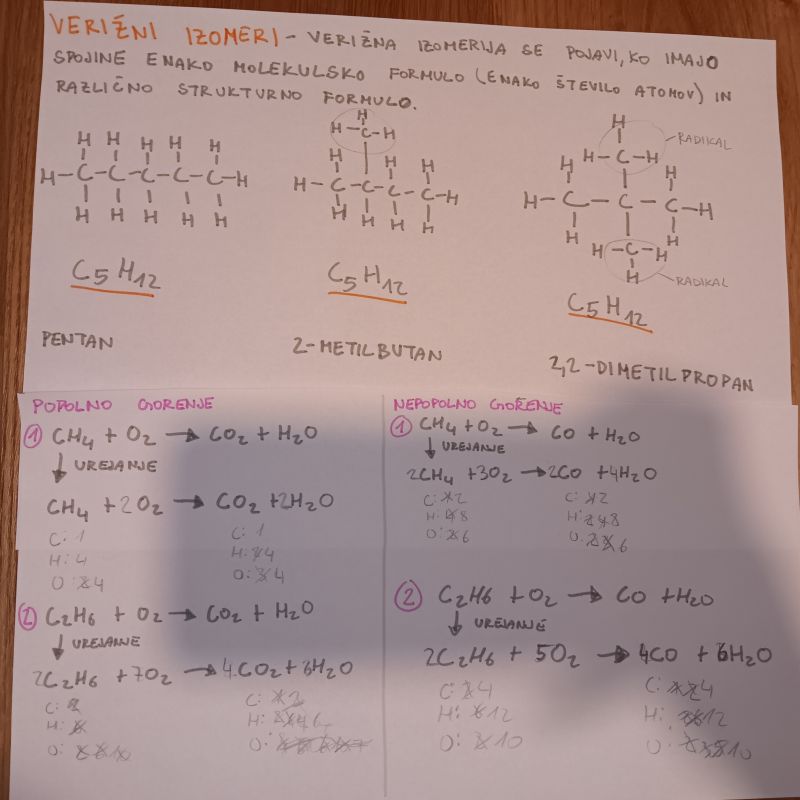 VERIŽNI IZOMERI - VERIŽNA IZOMERIJA SE POJAVI, KO IMAJO
SPOJINE ENAKO MOLEKULSKO FORMULO (ENAKO ŠTEVILO ATOMOV) IN
RAZLIČNO STRUKTURNO FORMULO.
H H H H H
H-C-C-C-C-C-H
H H H H H
C5H12
PENTAN
H
H-C-H
H H H
H-C-C-C-C-H
H H H H
C5H12
2-METILBUTAN
H
RADIKAL
H-C-H
H H
H-C-C-C-H
H H
H-C-H
H
RADIKAL
C5H12
2,2-DIMETILPROPAN
POPOLNO GORENJE
1 CH4 + O2 → CO2 + H2O
↓ UREJANJE
CH4 + 2O2 → CO2 + 2H2O
C: 1 C: 1
H: 4 H: 4
O: 4 O: 4
2 C2H6 + O2 → CO2 + H2O
↓ UREJANJE
2C2H6 + 7O2 → 4CO2 + 6H2O
C: C:
H: H: 6
O: 10 O:
NEPOPOLNO GORENJE
1 CH4 + O2 → CO + H2O
↓ UREJANJE
2CH4 + 3O2 → 2CO + 4H2O
C: 2 C: 2
H: 8 H: 8
O: 6 O: 6
2 C2H6 + O2 → CO + H2O
↓ UREJANJE
2C2H6 + 5O2 → 4CO + 6H2O
C: 4 C: 4
H: 12 H: 12
O: 10 O: 10